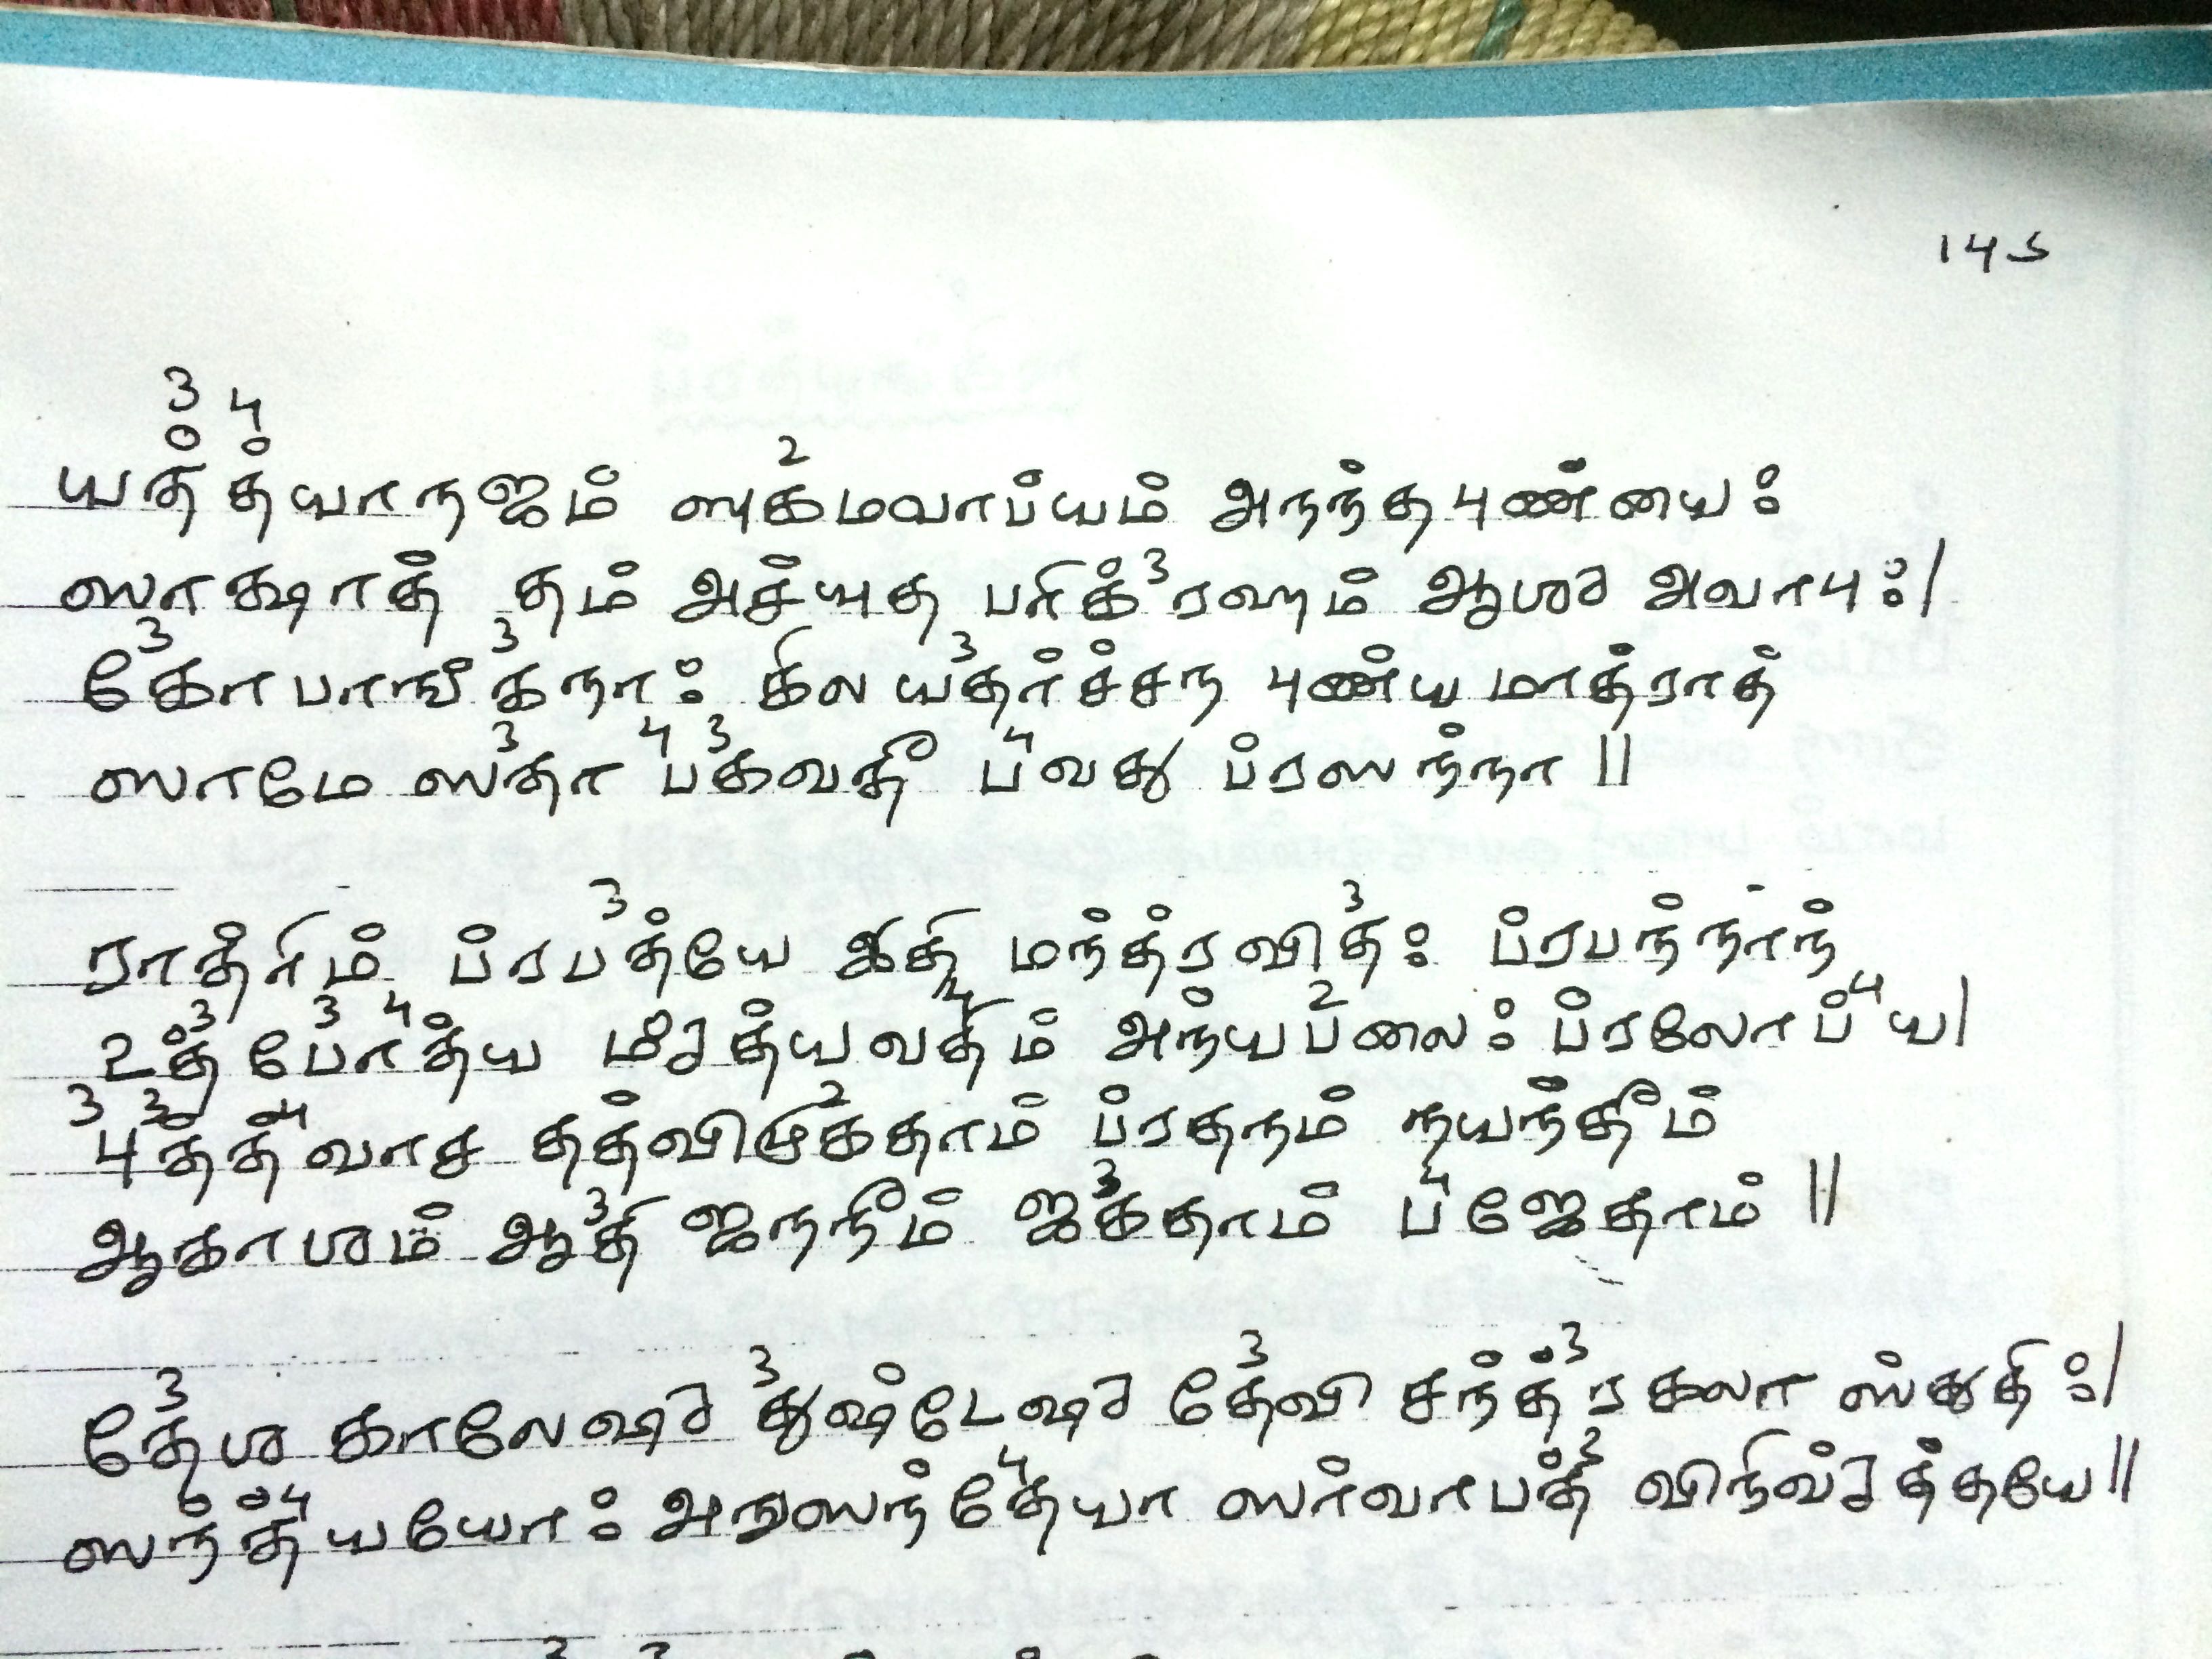 145
யத்³ த்⁴யாநஜம் ஸுக²மவாப்யம் அநந்தபுண்யை:
ஸாக்ஷாத் தம் அச்யுத பரிக்³ரஹம் ஆஶு அவாபு:|
கோ³பாங்க³நா: கில யத³ர்ச்சந புண்ய மாத்ராத்
ஸாமே ஸதா³ ப⁴க³வதீ ப⁴வது ப்ரஸந்நா ||
ராத்ரிம் ப்ரபத்³யே இதி மந்த்ரவித³: ப்ரபந்நாந்
உத்³போ³த்⁴ய ம்ருத்யவதி⁴ம் அந்யப²லை: ப்ரலோப்⁴ய|
பு³த்³த்⁴வாச தத்விமுக²தாம் ப்ரதநம் நயந்தீம்
ஆகாஶம் ஆதி³ ஜநநீம் ஜக³தாம் ப⁴ஜேதாம் ||
தே³ஶ காலேஷு து³ஷ்டேஷு தே³வி சந்த்³ரகலா ஸ்துதி:|
ஸந்த்⁴யயோ: அநுஸந்தே⁴யா ஸர்வாபத்³ விநிவ்ருத்தயே||